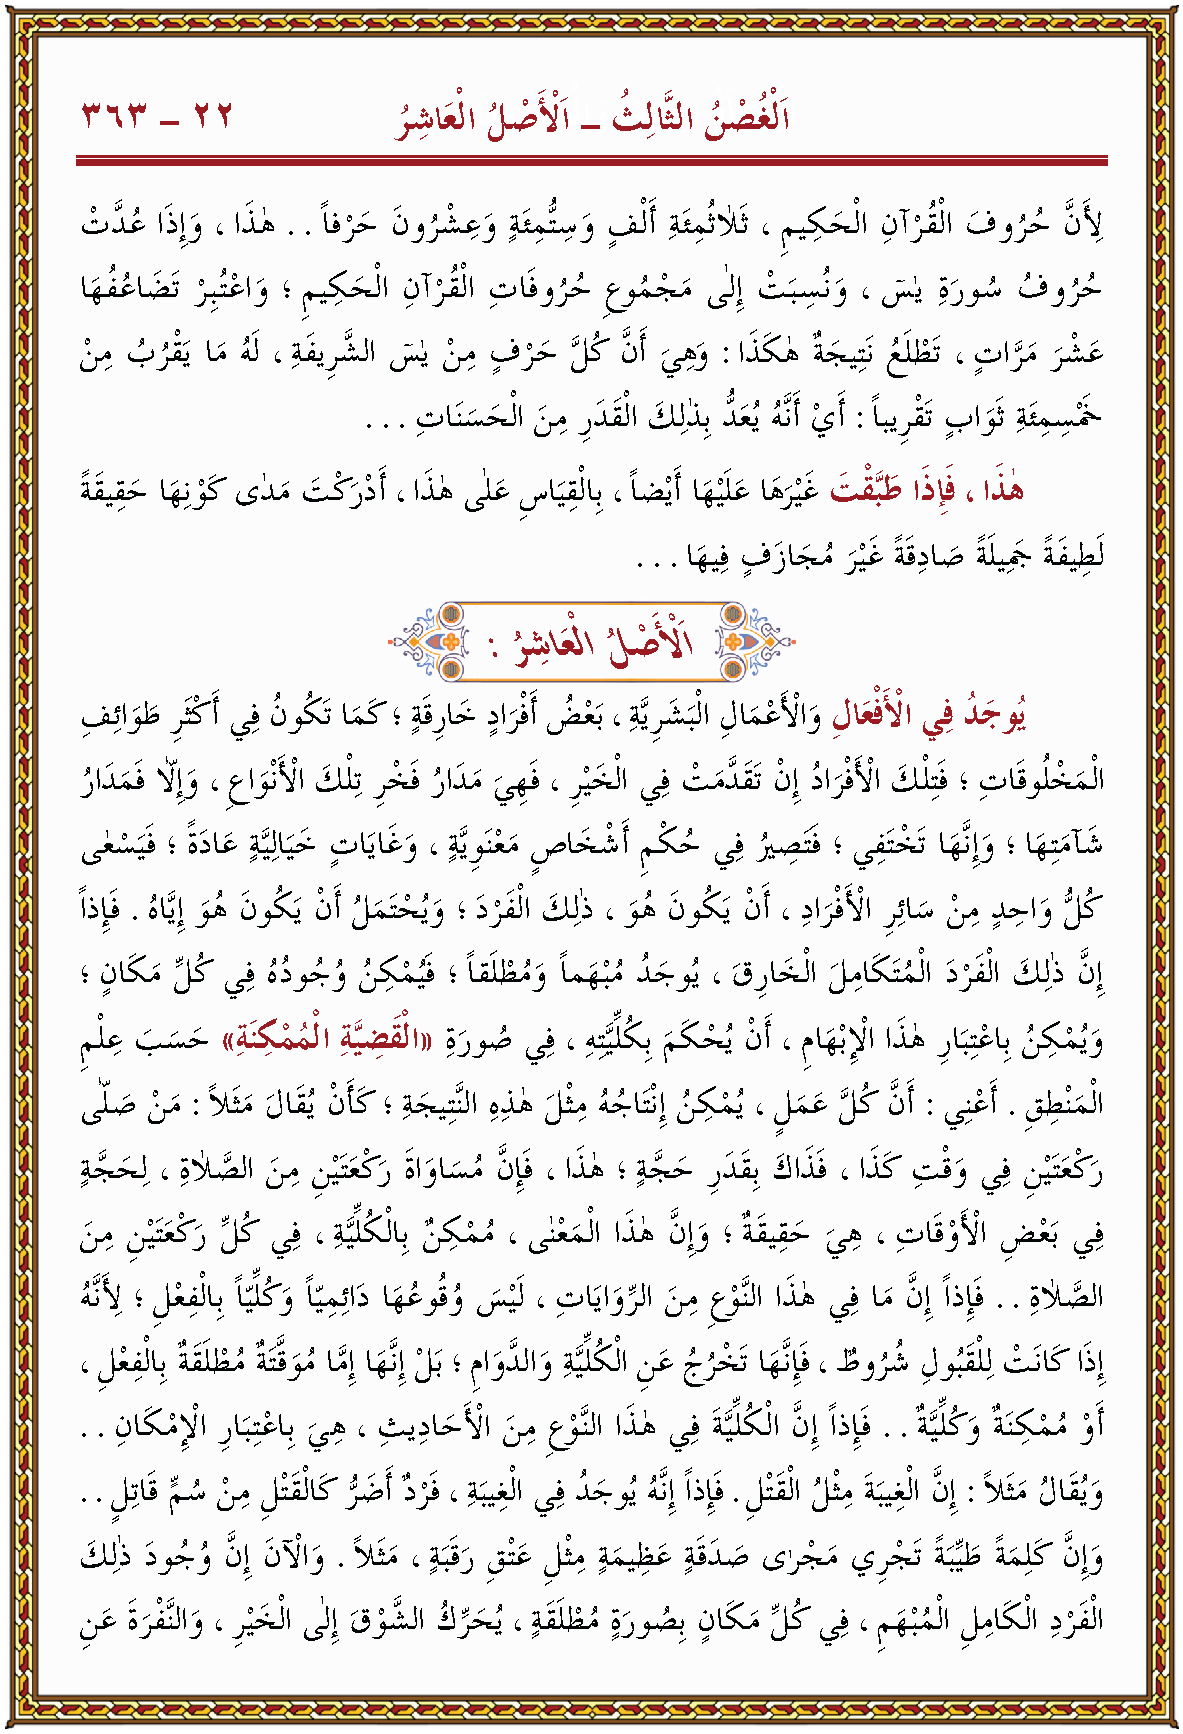 اَلْغُصْنُ الثَّالِثُ ـ اَلْأَصْلُ الْعَاشِرُ ٢٢ ـ ٣٦٣
لِأَنَّ حُرُوفَ الْقُرْآنِ الْحَكِيمِ ، ثَلَاثُمِئَةِ أَلْفٍ وَسِتُّمِئَةٍ وَعِشْرُونَ حَرْفاً . . هٰذَا ، وَإِذَا عُدَّتْ
حُرُوفُ سُورَةِ يٰسٓ ، وَنُسِبَتْ إِلٰى مَجْمُوعِ حُرُوفَاتِ الْقُرْآنِ الْحَكِيمِ ؛ وَاعْتُبِرْ تَضَاعُفُهَا
عَشْرَ مَرَّاتٍ ، تَطْلَعُ نَتِيجَةٌ هٰكَذَا : وَهِيَ أَنَّ كُلَّ حَرْفٍ مِنْ يٰسٓ الشَّرِيفَةِ ، لَهُ مَا يَقْرُبُ مِنْ
خَمْسِمِئَةِ ثَوَابٍ تَقْرِيباً : أَيْ أَنَّهُ يُعَدُّ بِذٰلِكَ الْقَدَرِ مِنَ الْحَسَنَاتِ . . .
هٰذَا ، فَإِذَا طَبَّقْتَ غَيْرَهَا عَلَيْهَا أَيْضاً ، بِالْقِيَاسِ عَلٰى هٰذَا ، أَدْرَكْتَ مَدٰى كَوْنِهَا حَقِيقَةً
لَطِيفَةً جَمِيلَةً صَادِقَةً غَيْرَ مُجَازَفٍ فِيهَا . . .
اَلْأَصْلُ الْعَاشِرُ :
يُوجَدُ فِي الْأَفْعَالِ وَالْأَعْمَالِ الْبَشَرِيَّةِ ، بَعْضُ أَفْرَادٍ خَارِقَةٍ ؛ كَمَا تَكُونُ فِي أَكْثَرِ طَوَائِفِ
الْمَخْلُوقَاتِ ؛ فَتِلْكَ الْأَفْرَادُ إِنْ تَقَدَّمَتْ فِي الْخَيْرِ ، فَهِيَ مَدَارُ فَخْرِ تِلْكَ الْأَنْوَاعِ ، وَإِلَّا فَمَدَارُ
شَآمَتِهَا ؛ وَإِنَّهَا تَخْتَفِي ؛ فَتَصِيرُ فِي حُكْمِ أَشْخَاصٍ مَعْنَوِيَّةٍ ، وَغَايَاتٍ خَيَالِيَّةٍ عَادَةً ؛ فَيَسْعٰى
كُلُّ وَاحِدٍ مِنْ سَائِرِ الْأَفْرَادِ ، أَنْ يَكُونَ هُوَ ، ذٰلِكَ الْفَرْدَ ؛ وَيُحْتَمَلُ أَنْ يَكُونَ هُوَ إِيَّاهُ . فَإِذاً
إِنَّ ذٰلِكَ الْفَرْدَ الْمُتَكَامِلَ الْخَارِقَ ، يُوجَدُ مُبْهَماً وَمُطْلَقاً ؛ فَيُمْكِنُ وُجُودُهُ فِي كُلِّ مَكَانٍ ؛
وَيُمْكِنُ بِاعْتِبَارِ هٰذَا الْإِبْهَامِ ، أَنْ يُحْكَمَ بِكُلِّيَّتِهِ ، فِي صُورَةِ «الْقَضِيَّةِ الْمُمْكِنَةِ» حَسَبَ عِلْمِ
الْمَنْطِقِ . أَعْنِي : أَنَّ كُلَّ عَمَلٍ ، يُمْكِنُ إِنْتَاجُهُ مِثْلَ هٰذِهِ النَّتِيجَةِ ؛ كَأَنْ يُقَالَ مَثَلاً : مَنْ صَلّٰى
رَكْعَتَيْنِ فِي وَقْتِ كَذَا ، فَذَاكَ بِقَدَرِ حَجَّةٍ ؛ هٰذَا ، فَإِنَّ مُسَاوَاةَ رَكْعَتَيْنِ مِنَ الصَّلَاةِ ، لِحَجَّةٍ
فِي بَعْضِ الْأَوْقَاتِ ، هِيَ حَقِيقَةٌ ؛ وَإِنَّ هٰذَا الْمَعْنٰى ، مُمْكِنٌ بِالْكُلِّيَّةِ ، فِي كُلِّ رَكْعَتَيْنِ مِنَ
الصَّلَاةِ . . فَإِذاً إِنَّ مَا فِي هٰذَا النَّوْعِ مِنَ الرِّوَايَاتِ ، لَيْسَ وُقُوعُهَا دَائِمِيّاً وَكُلِّيّاً بِالْفِعْلِ ؛ لِأَنَّهُ
إِذَا كَانَتْ لِلْقَبُولِ شُرُوطٌ ، فَإِنَّهَا تَخْرُجُ عَنِ الْكُلِّيَّةِ وَالدَّوَامِ ؛ بَلْ إِنَّهَا إِمَّا مُوَقَّتَةٌ مُطْلَقَةٌ بِالْفِعْلِ ،
أَوْ مُمْكِنَةٌ وَكُلِّيَّةٌ . . فَإِذاً إِنَّ الْكُلِّيَّةَ فِي هٰذَا النَّوْعِ مِنَ الْأَحَادِيثِ ، هِيَ بِاعْتِبَارِ الْإِمْكَانِ . .
وَيُقَالُ مَثَلاً : إِنَّ الْغِيبَةَ مِثْلُ الْقَتْلِ . فَإِذاً إِنَّهُ يُوجَدُ فِي الْغِيبَةِ ، فَرْدٌ أَضَرُّ كَالْقَتْلِ مِنْ سُمٍّ قَاتِلٍ . .
وَإِنَّ كَلِمَةً طَيِّبَةً تَجْرِي مَجْرٰى صَدَقَةٍ عَظِيمَةٍ مِثْلِ عَتْقِ رَقَبَةٍ ، مَثَلاً . وَالْآنَ إِنَّ وُجُودَ ذٰلِكَ
الْفَرْدِ الْكَامِلِ الْمُبْهَمِ ، فِي كُلِّ مَكَانٍ بِصُورَةٍ مُطْلَقَةٍ ، يُحَرِّكُ الشَّوْقَ إِلٰى الْخَيْرِ ، وَالنَّفْرَةَ عَنِ